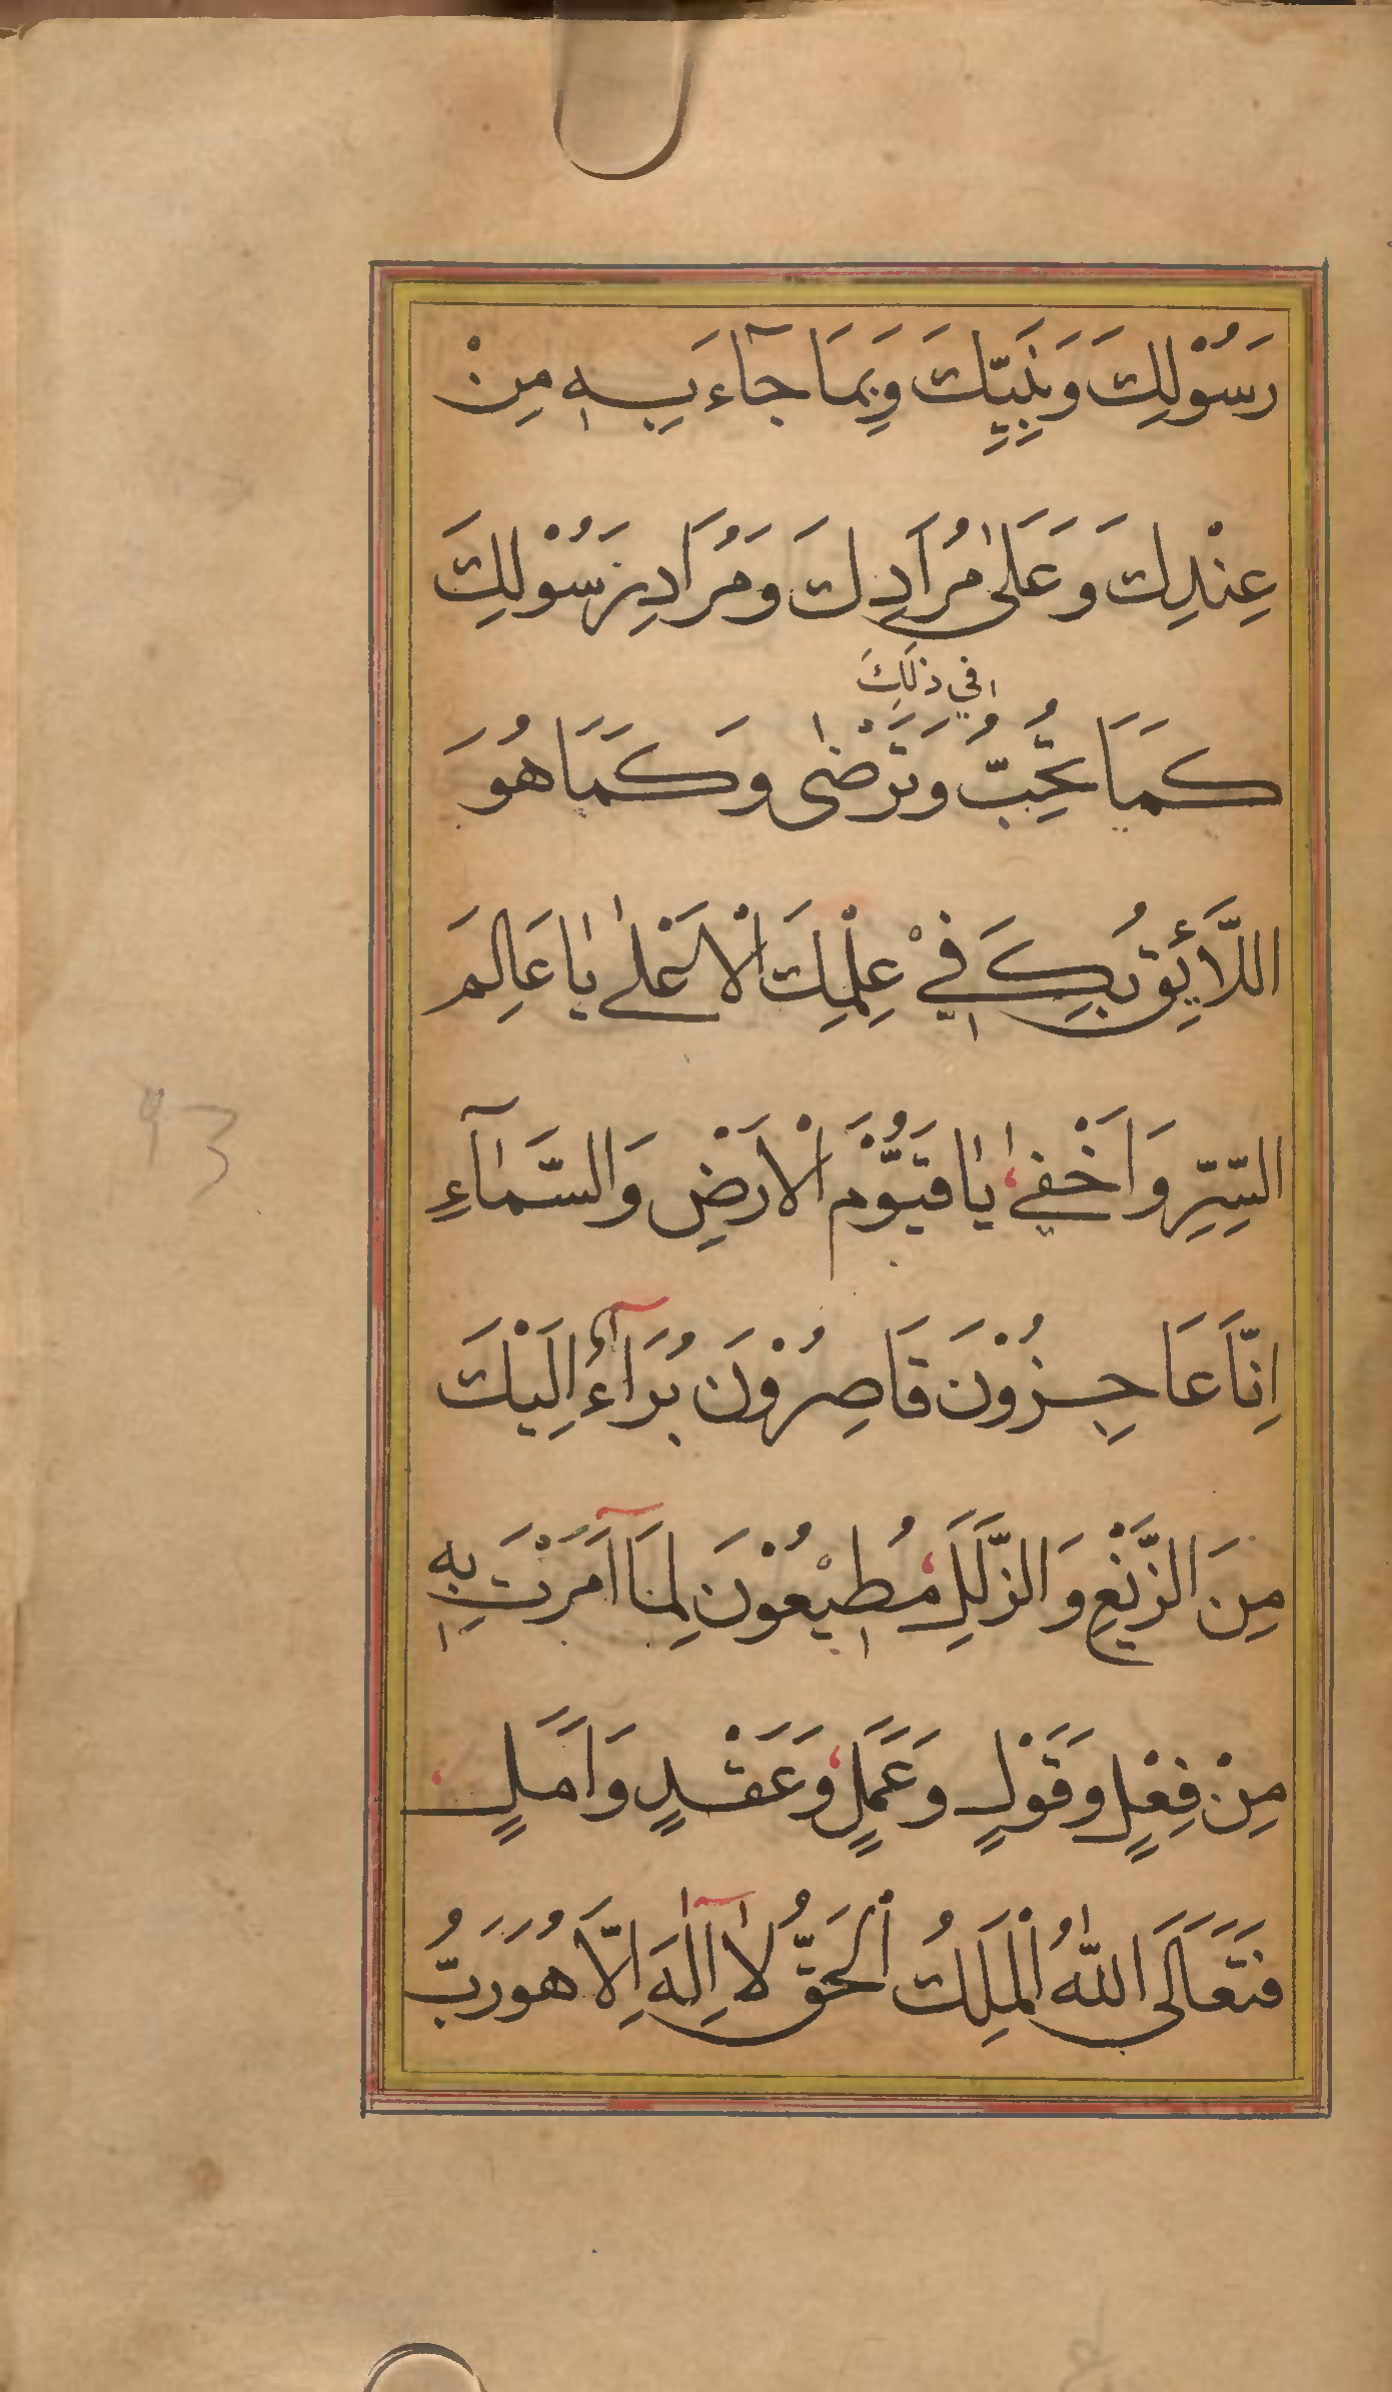 رَسُوْلِكَ وَنَبِيِّكَ وَبِمَا جَآءَ بِهٖ مِنْ
عِنْدِكَ وَعَلٰى مُرَادِكَ وَمُرَادِ رَسُوْلِكَ
فِي ذٰلِكَ
كَمَا تُحِبُّ وَتَرْضٰى وَكَمَا هُوَ
اللَّائِقُ بِكَ فِيْ عِلْمِكَ الْاَعْلٰى يٰا عَالِمَ
السِّرِّ وَاَخْفٰى يٰا قَيُّوْمَ الْاَرْضِ وَالسَّمٰآءِ
اِنَّا عَاجِزُوْنَ قَاصِرُوْنَ بُرَآءُ اِلَيْكَ
مِنَ الزَّيْغِ وَالزَّلَلِ مُطِيْعُوْنَ لِمَا اَمَرْتَ بِهٖ
مِنْ فِعْلٍ وَقَوْلٍ وَعَمَلٍ وَعَقْدٍ وَاَمَلٍ
فَتَعَالَى اللّٰهُ الْمَلِكُ الْحَقُّ لٰا اِلٰهَ اِلَّا هُوَ رَبُّ